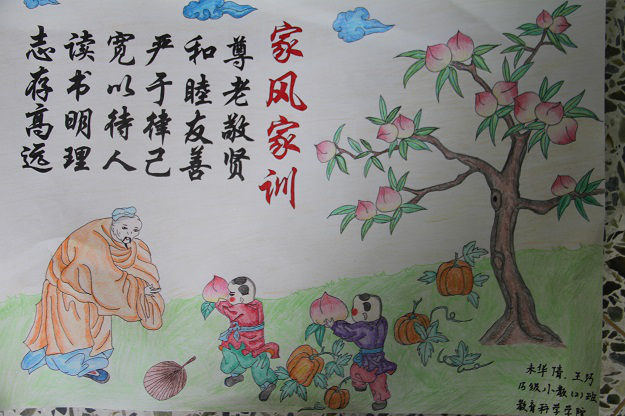 家风家训
尊老敬贤
和睦友善
严于律己
宽以待人
读书明理
志存高远
15级小教(2)班
教育科学学院